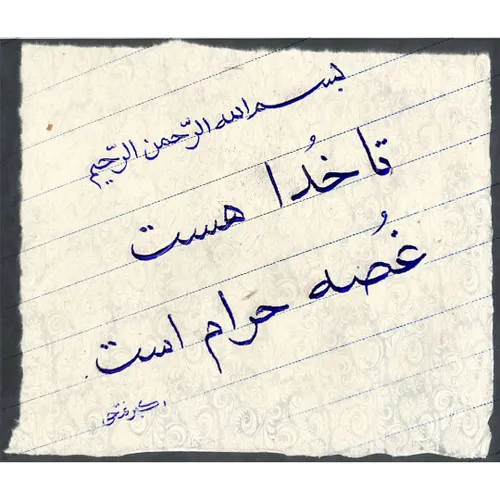 بسم الله الرّحمن الرّحیم
تا خُدا هست
غُصه حرام است
اکبر فتحی